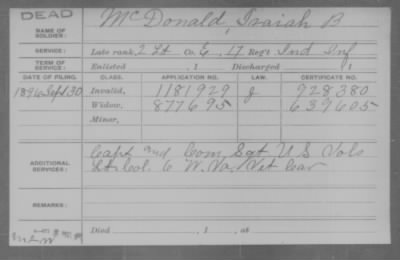 DEAD
NAME OF SOLDIER: McDonald, Isaiah B
SERVICE: Late rank, 2 Lt Co. E, 17 Reg't Ind Inf
TERM OF SERVICE: Enlisted , 1 Discharged , 1
DATE OF FILING. CLASS. APPLICATION NO. LAW. CERTIFICATE NO.
1896 Sept 30 Invalid, 1181929 J 928380
Widow, 877695 639605
Minor,
ADDITIONAL SERVICES: Capt and Com, Sgt U S Vols
Lt Col. 6 W. Va. Vet Cav
REMARKS:
Died , 1 , at